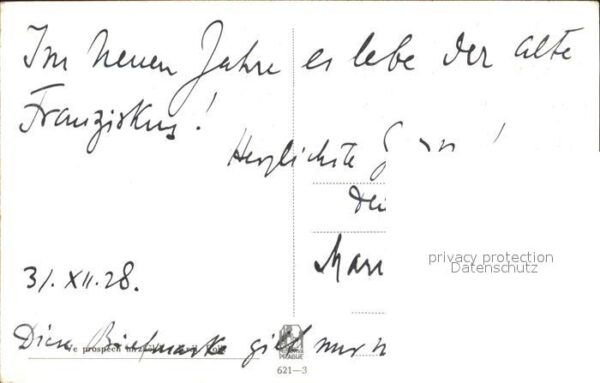 Im neuen Jahre es lebe der alte
Franziskus!
Herzlichste
Mari
31. XII. 28.
Diese Briefmarke gilt nur
ve prospěch
PRAGUE
621—3
privacy protection
Datenschutz